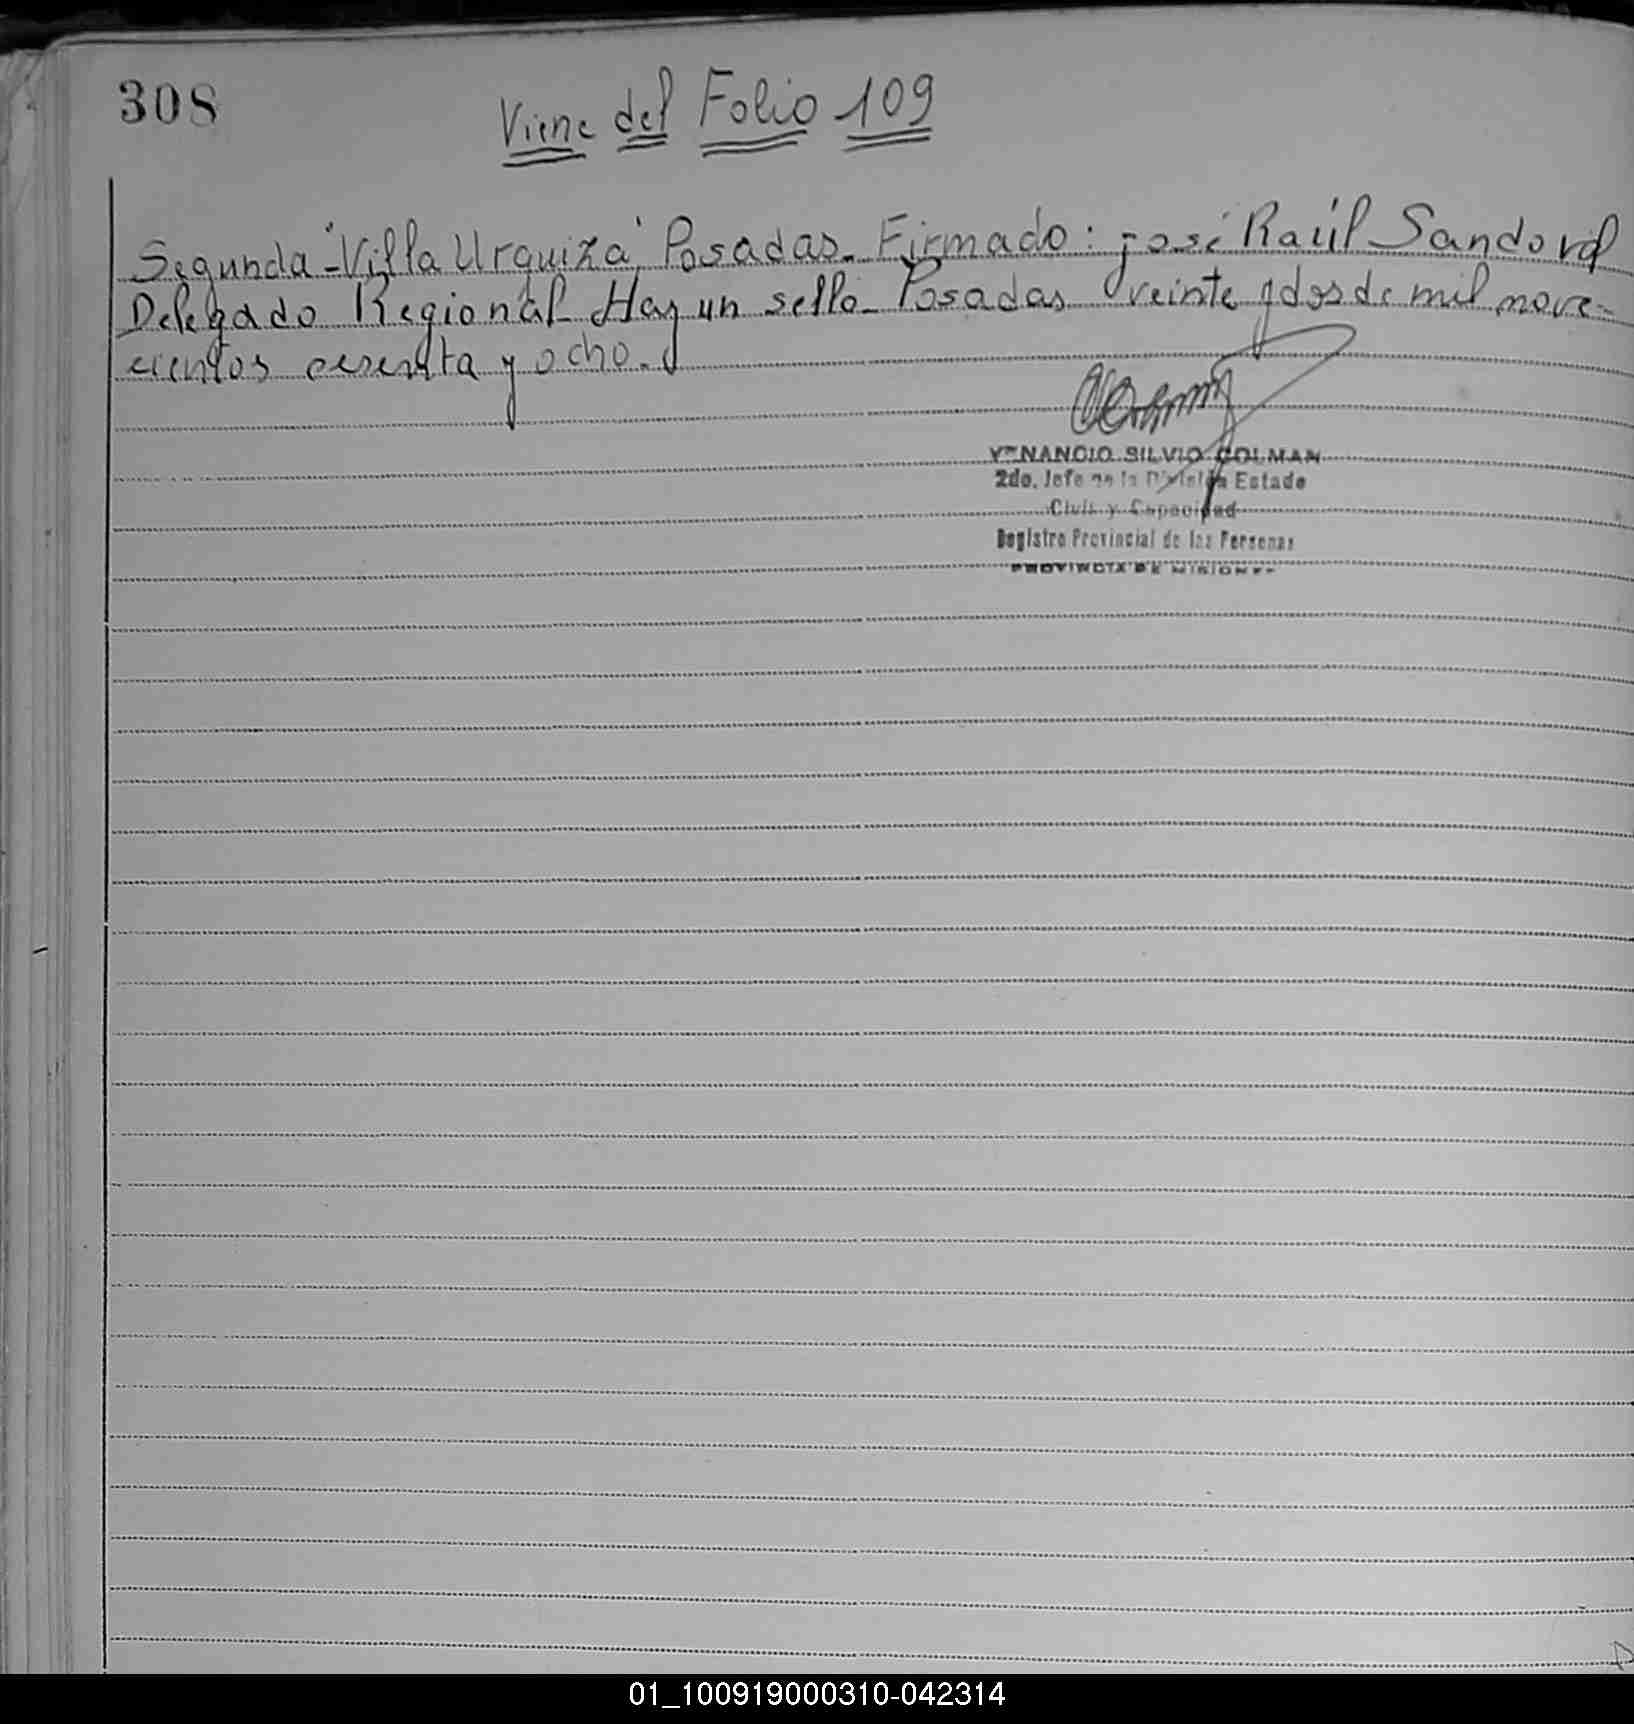 308
Viene del Folio 109
Segunda "Villa Urquiza" Posadas. Firmado: José Raúl Sandoval
Delegado Regional. Hay un sello. Posadas veinte y dos de mil nove-
cientos sesenta y ocho.
VENANCIO SILVIO COLMAN
2do. Jefe de la División Estado
Civil y Capacidad
Registro Provincial de las Personas
PROVINCIA DE MISIONES
01_100919000310-042314